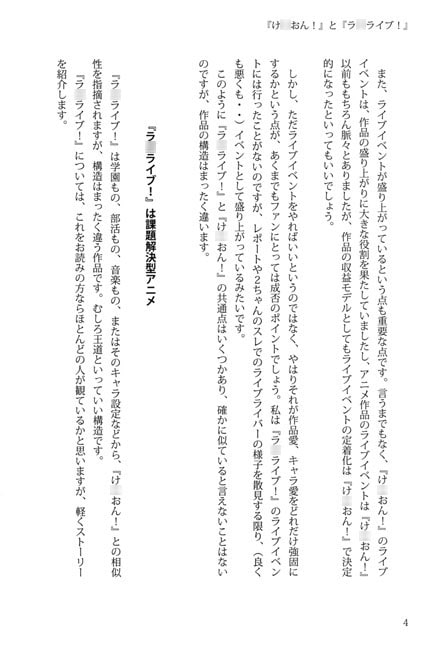 『け おん！』と『ラ ライブ！』
また、ライブイベントが盛り上がっているという点も重要な点です。言うまでもなく、『け おん！』のライブ
イベントは、作品の盛り上がりに大きな役割を果たしていましたし、アニメ作品のライブイベントは『け おん！』
以前ももちろん脈々とありましたが、作品の収益モデルとしてもライブイベントの定着化は『け おん！』で決定
的になったといってもいいでしょう。
しかし、ただライブイベントをやればいいというのではなく、やはりそれが作品愛、キャラ愛をどれだけ強固に
するかという点が、あくまでもファンにとっては成否のポイントでしょう。私は『ラ ライブ！』のライブイベン
トには行ったことがないのですが、レポートや2ちゃんのスレでのライブライバーの様子を散見する限り、（良く
も悪くも・・）イベントとして盛り上がっているみたいです。
このように『ラ ライブ！』と『け おん！』の共通点はいくつかあり、確かに似ていると言えないことはない
のですが、作品の構造はまったく違います。
『ラ ライブ！』は課題解決型アニメ
『ラ ライブ！』は学園もの、部活もの、音楽もの、またはそのキャラ設定などから、『け おん！』との相似
性を指摘されますが、構造はまったく違う作品です。むしろ王道といっていい構造です。
『ラ ライブ！』については、これをお読みの方ならほとんどの人が観ているかと思いますが、軽くストーリー
を紹介します。
4